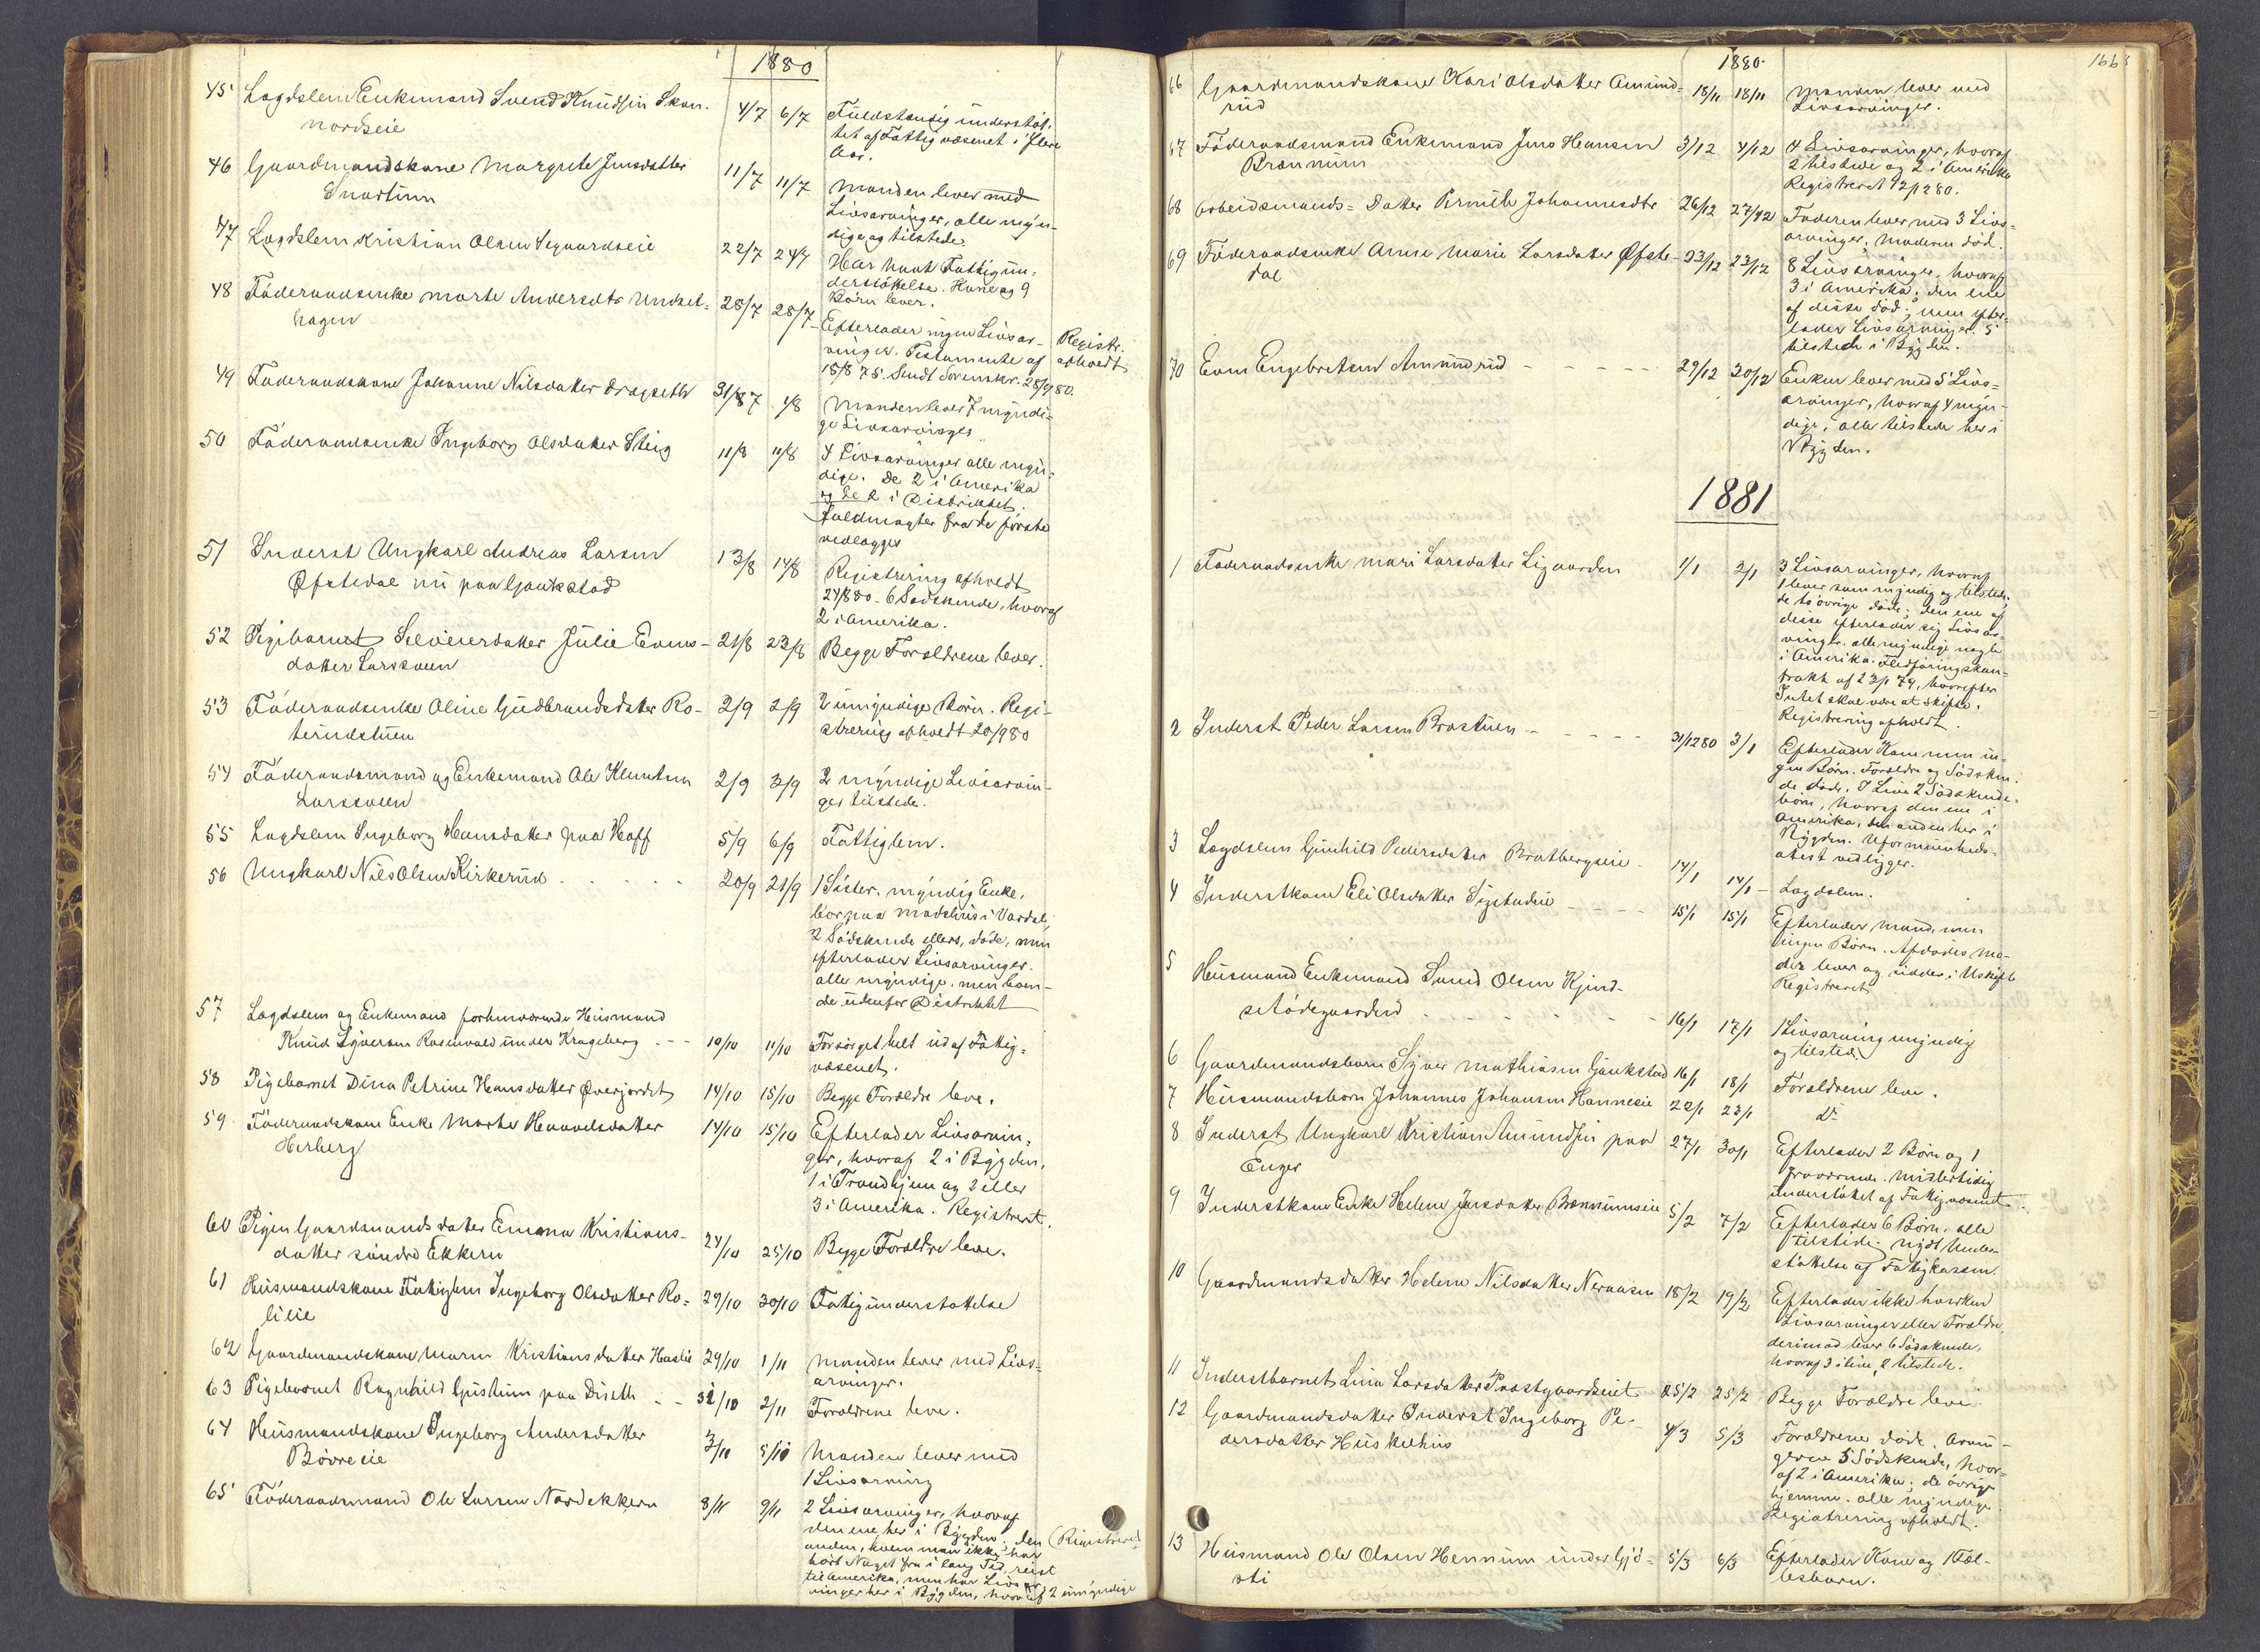 1880
45 Lægdslem Enkemand Svend Knudsen Skon-
nordseie
4/7 6/7 Fuldstændig understøt-
tet af Fattigvæsenet i flere
Aar.
46 Gaardmandskone Margrete Jensdatter
Snartum
11/7 11/7 Manden lever med
Livsarvinger, alle myn-
dige og tilstede.
47 Lægdslem Kristian Olsen Segaardseie
22/7 24/7 Har havt Fattigun-
derstøttelse. Kone og 9
Børn lever.
48 Föderaadsenke Marte Andersdtr Undset-
hagen
28/7 28/7 Efterlader ingen Livsar-
vinger. Testamente af
15/8 75. Sendt Sorenskr. 28/9 80.
Registr.
afholdt
49 Föderaadskone Johanne Nilsdatter Dragseth
31/7 1/8 Manden lever 7 myndi-
ge Livsarvinger
50 Föderaadsenke Ingeborg Olsdatter Steig
11/8 11/8 4 Livsarvinger alle myn-
dige. De 2 i Amerika
og de 2 i Distriktet.
Fuldmagter fra de første
vedlægges
51 Inderst Ungkarl Andreas Larsen
Øfstedal nu paa Gaukstad
13/8 14/8 Registrering afholdt
24/8 80. 6 Sødskende, hvoraf
2 i Amerika.
52 Pigebarnet Selveierdatter Julie Evens-
datter Larssveen
21/8 23/8 Begge Forældrene lever.
53 Föderaadsenke Oline Gudbrandsdatter Ro-
terudstuen
2/9 2/9 2 umyndige Børn. Regi-
strering afholdt 20/9 80
54 Föderaadsmand og Enkemand Ole Klemetsen
Larssveen
2/9 3/9 2 myndige Livsarvin-
ger tilstede.
55 Lægdslem Ingeborg Hansdatter paa Hoff
5/9 6/9 Fattiglem.
56 Ungkarl Nils Olsen Kirkerud
20/9 21/9 1 Søster, myndig Enke,
bor paa Madshus i Vardal,
2 Sødskende ellers, døde, men
efterlader Livsarvinger.
alle myndige, men boen-
de udenfor Distriktet
57 Lægdslem og Enkemand forhenværende Husmand
Knud Syversen Rosenvald under Krageberg
10/10 11/10 Forsørget helt ud af Fattig-
væsenet.
58 Pigebarnet Dina Petrine Hansdatter Øverjordet
14/10 15/10 Begge Forældre leve.
59 Föderaadskone Enke Marthe Haavelsdatter
Herberg
14/10 15/10 Efterlader Livsarvin-
ger, hvoraf 2 i Bygden,
1 i Trondhjem og 2 eller
3 i Amerika. Registreret.
60 Pigen Gaardmandsdatter Emma Kristians-
datter søndre Ekkern
24/10 25/10 Begge Forældre leve.
61 Husmandskone Fattiglem Ingeborg Olsdatter Ro-
lieie
29/10 30/10 Fattigunderstøttelse
62 Gaardmandskone Maren Kristiansdatter Haslie
29/10 1/11 Manden lever med Livs-
arvinger.
63 Pigebarnet Ragnhild Gustum paa Diseth
31/10 2/11 Forældrene leve.
64 Husmandskone Ingeborg Andersdatter
Bövreeie
3/10 5/10 Manden lever med
1 Livsarving
65 Föderaadsmand Ole Larsen Nordekkern
8/11 9/11 2 Livsarvinger, hvoraf
den ene her i Bygden, den
anden, hvem man ikke har
hørt Noget fra i lang Tid, reist
til Amerika, men har Livsar-
vinger her i Bygden, hvoraf 2 umyndige
(Registreret
1880
66 Gaardmandskone Kari Olsdatter Amund-
rud
18/11 18/11 Manden lever med
Livsarvinger.
67 Föderaadsmand Enkemand Jens Hansen
Brænnum
3/12 4/12 4 Livsarvinger, hvoraf
2 tilstede og 2 i Amerika
Registreret 12/12 80.
68 Arbeidsmands-Datter Pernille Johannesdtr
26/12 27/12 Faderen lever med 3 Livs-
arvinger, Moderen død.
69 Föderaadsenke Anne Marie Larsdatter Øfste-
dal
23/12 23/12 8 Livsarvinger, hvoraf
3 i Amerika; den ene
af disse død; men efter-
lader Livsarvinger, 5
tilstede i Bygden.
70 Even Engebretsen Amundrud
29/12 30/12 Enken lever med 5 Livs-
arvinger, hvoraf 4 myn-
dige, alle tilstede her i
Bygden.
1881
1 Föderaadsenke Mari Larsdatter Ligaarden
1/1 2/1 3 Livsarvinger, hvoraf
1 lever som myndig og tilstede,
de to øvrige døde; den ene af
disse efterlader sig Livsar-
vinger, alle myndige nogle
i Amerika. Fledføringskon-
trakt af 23/1 74, hvorefter
Intet skal være at skifte.
Registrering afholdt.
2 Inderst Peder Larsen Brostuen
31/12 80 3/1 Efterlader Kone men in-
gen Børn. Forældre og Sødsken-
de døde. I Live 2 Sødskende-
børn, hvoraf den ene i
Amerika, den anden her i
Bygden. Uformuenheds-
attest vedligger.
3 Lægdslem Gunhild Pedersdatter Bratbergseie
14/1 14/1 Lægdslem.
4 Inderstkone Eli Olsdatter Sigstadeie
15/1 15/1 Efterlader Mand, men
ingen Børn. Afdødes Mo-
der lever og sidder i Uskifte
Registreret
5 Husmand Enkemand Svend Olsen Kjend-
setødegaarden
16/1 17/1 1 Livsarving myndig
og tilstede
6 Gaardmandsbarn Syver Mathiasen Gaukstad 16/1 18/1 Forældrene leve.
7 Husmandsbarn Johannes Johansen Hanneseie 22/1 23/1 do
8 Inderst Ungkarl Kristian Amundsen paa
Enger
27/1 30/1 Efterlader 2 Børn og 1
fraværende. Midlertidig
understøttet af Fattigvæsenet.
9 Inderstkone Enke Helene Jensdatter Brænnumseie
5/2 7/2 Efterlader 6 Børn, alle
tilstede. nydt Under-
støttelse af Fattigkassen
10 Gaardmandsdatter Helene Nilsdatter Neraasen
18/2 19/2 Efterlader ikke hverken
Livsarvinger eller Forældre,
derimod lever 6 Sødskende,
hvoraf 3 i live, 2 tilstede.
11 Inderstbarnet Lina Larsdatter Prostgaardseiet 25/2 25/2 Begge Forældre leve.
12 Gaardmandsdatter Inderst Ingeborg Pe-
dersdatter Huskelhus
4/3 5/3 Forældrene døde. Arvin-
gerne 5 Sødskende, hvor-
af 2 i Amerika; de øvrige
hjemme. alle myndige
Registrering afholdt.
13 Husmand Ole Olsen Hennum under Gjö-
sti
5/3 6/3 Efterlader Kone og 1 Fæl-
lesbarn.